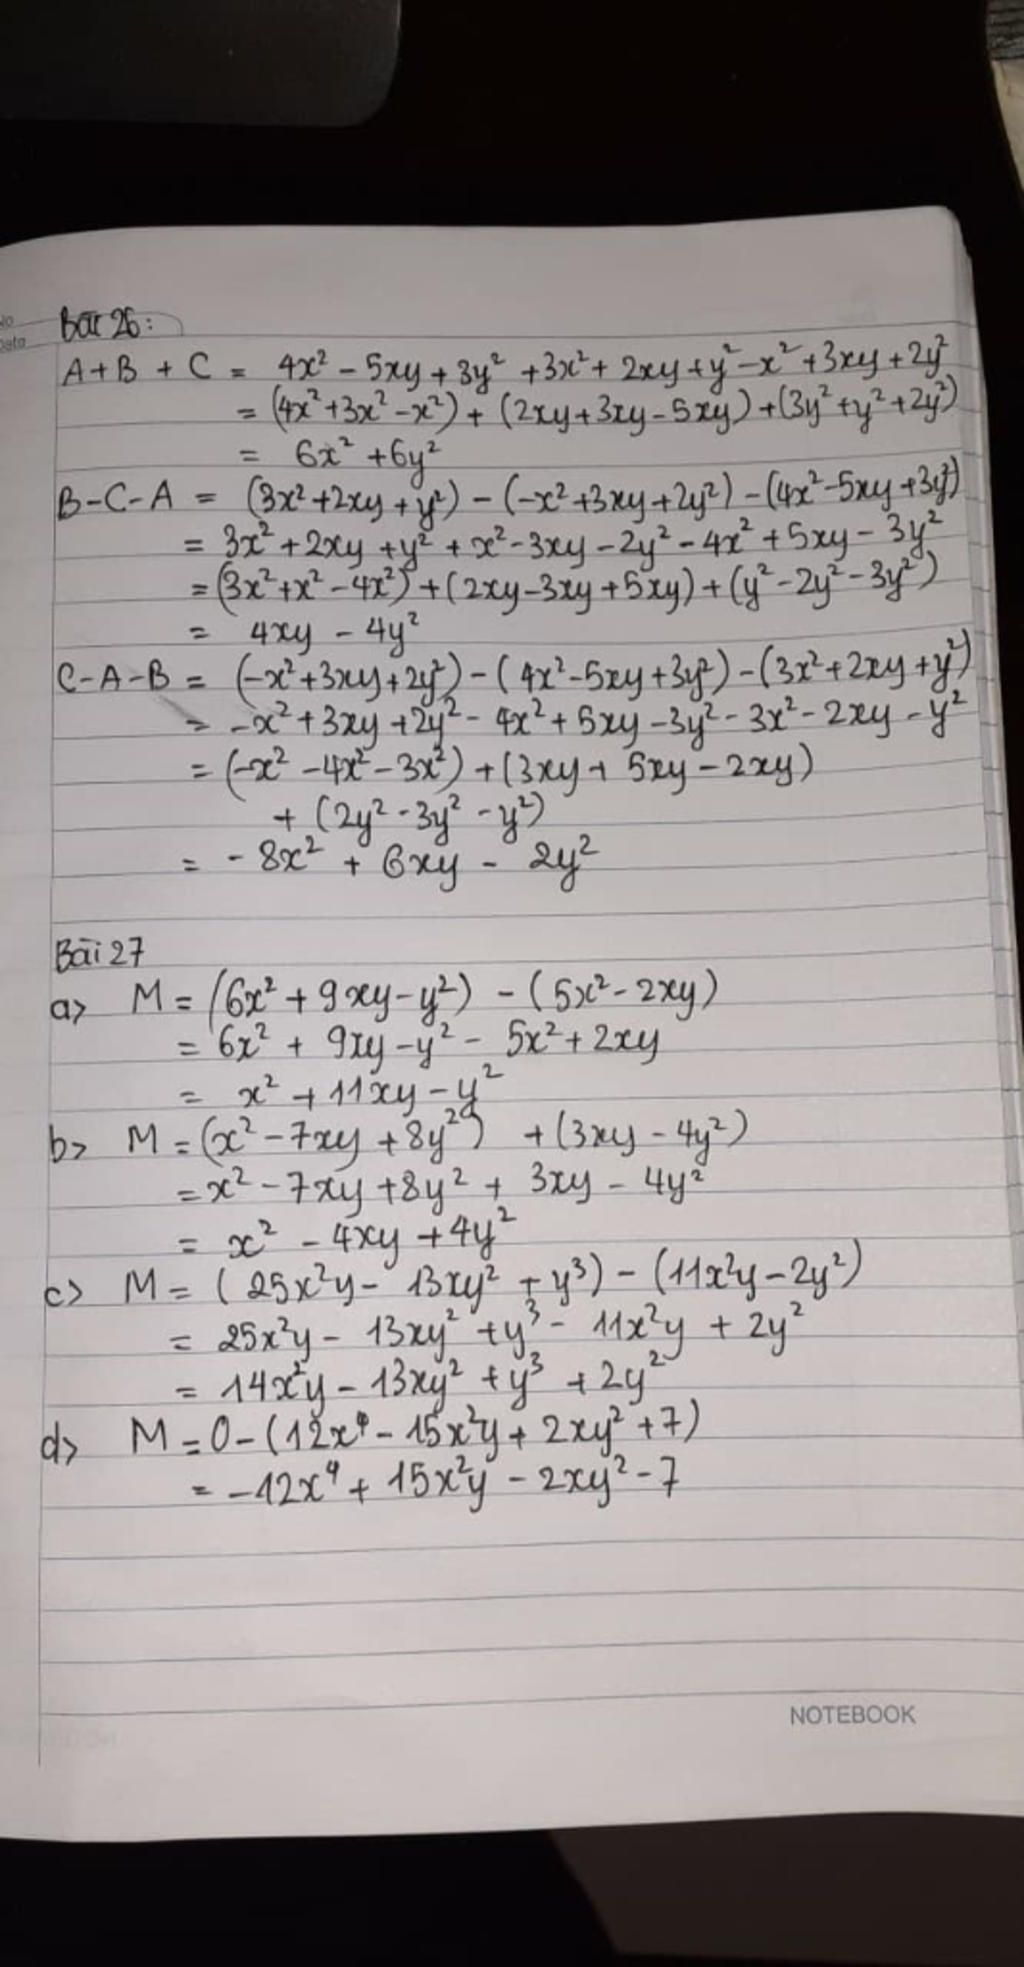 No
Date
Bài 26:
A+B + C = 4x² - 5xy + 3y² + 3x² + 2xy + y² - x² + 3xy + 2y²
= (4x² + 3x² - x²) + (2xy + 3xy - 5xy) + (3y² + y² + 2y²)
= 6x² + 6y²
B-C-A = (3x² + 2xy + y²) - (-x² + 3xy + 2y²) - (4x² - 5xy + 3y²)
= 3x² + 2xy + y² + x² - 3xy - 2y² - 4x² + 5xy - 3y²
= (3x² + x² - 4x²) + (2xy - 3xy + 5xy) + (y² - 2y² - 3y²)
= 4xy - 4y²
C-A-B = (-x² + 3xy + 2y²) - (4x² - 5xy + 3y²) - (3x² + 2xy + y²)
= -x² + 3xy + 2y² - 4x² + 5xy - 3y² - 3x² - 2xy - y²
= (-x² - 4x² - 3x²) + (3xy + 5xy - 2xy)
+ (2y² - 3y² - y²)
= -8x² + 6xy - 2y²
Bài 27
a> M = (6x² + 9xy - y²) - (5x² - 2xy)
= 6x² + 9xy - y² - 5x² + 2xy
= x² + 11xy - y²
b> M = (x² - 7xy + 8y²) + (3xy - 4y²)
= x² - 7xy + 8y² + 3xy - 4y²
= x² - 4xy + 4y²
c> M = (25x²y - 13xy² + y³) - (11x²y - 2y²)
= 25x²y - 13xy² + y³ - 11x²y + 2y²
= 14x²y - 13xy² + y³ + 2y²
d> M = 0 - (12x⁴ - 15x²y + 2xy² + 7)
= -12x⁴ + 15x²y - 2xy² - 7
NOTEBOOK